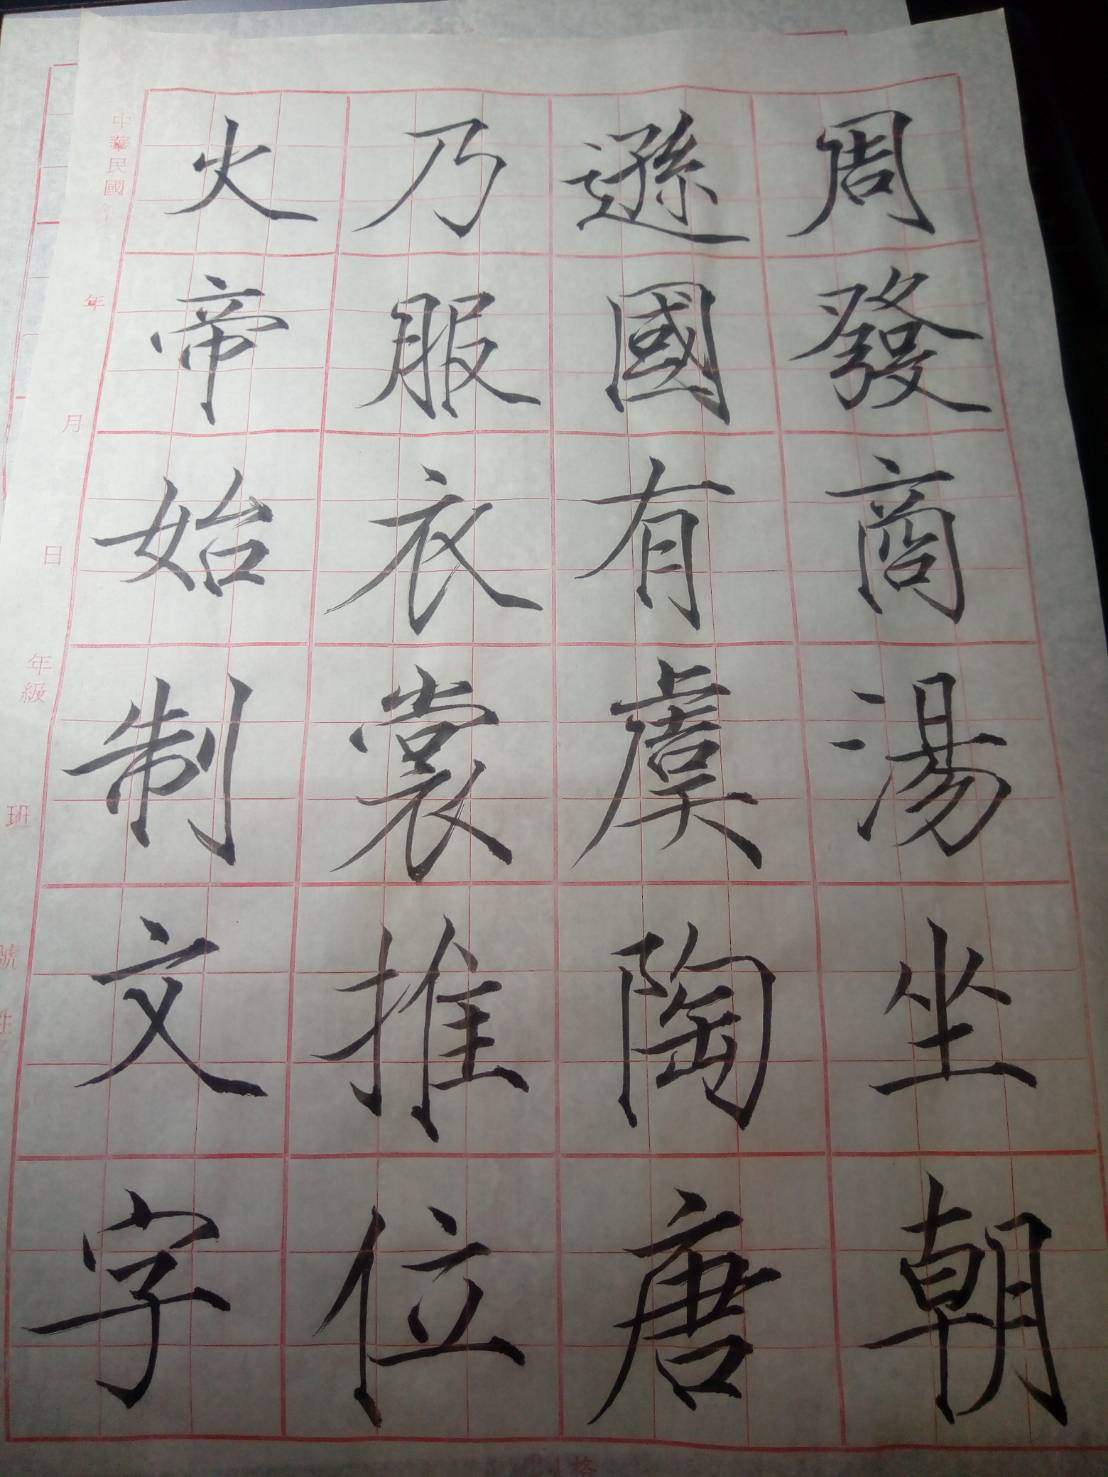 周發商湯坐朝
遜國有虞陶唐
乃服衣裳推位
火帝始制文字
中華民國 年 月 日 年級 班 號 姓